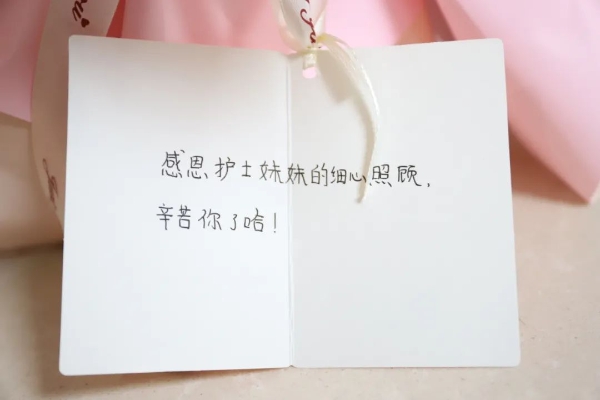 感恩护士妹妹的细心照顾,
辛苦你了哈!